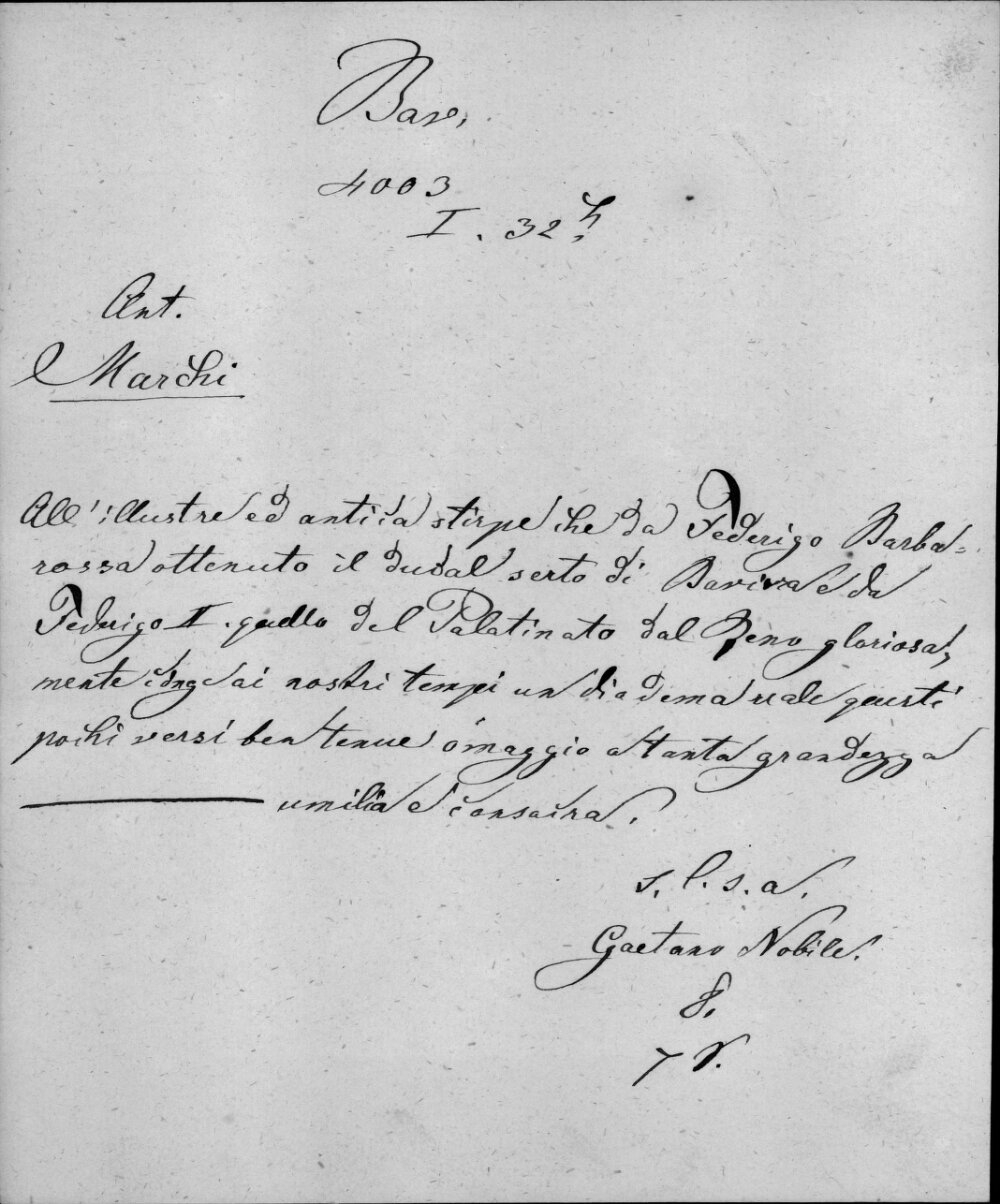 Bav.
4003
I. 32 h.
Ant.
Marchi
All' illustre ed antica stirpe che da Federigo Barba=
rossa ottenuto il ducal serto di Baviera e da
Federigo II. quello del Palatinato dal Reno gloriosa,
mente cinge ai nostri tempi un diadema reale questi
pochi versi ben tenue omaggio a tanta grandezza
umilia e consacra.
s. l. s. a.
Gaetano Nobile.
8.
7 S.